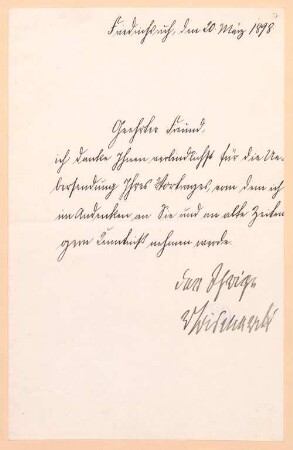 Friedrichsruh, den 20 März 1898
Geehrter Freund,
ich danke Ihnen verbindlichst für die Ue-
bersendung Ihres Vortrages, von dem ich
im Andenken an Sie und an alte Zeiten
gern Kenntniß nehmen werde.
der Ihrige
vBismarck